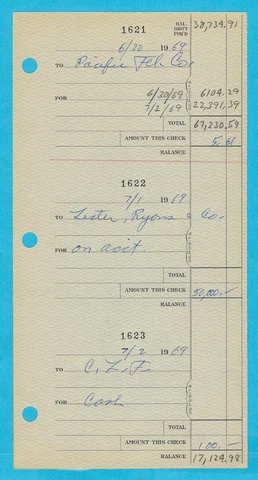 1621 BAL. BRO'T FOR'D 38,734.91
6/30 1969
TO Pacific Tel. Co.
FOR
6/30/69 6104.29
7/2/69 22,391.39
DEPOSITS
TOTAL 67,230.59
AMOUNT THIS CHECK 5.61
BALANCE
1622
7/1 1969
TO Lester, Ryons & Co.
FOR on acct.
DEPOSITS
TOTAL
AMOUNT THIS CHECK 50,000.-
BALANCE
1623
7/2 1969
TO C.L.F.
FOR Cash
DEPOSITS
TOTAL
AMOUNT THIS CHECK 100.-
BALANCE 17,124.98